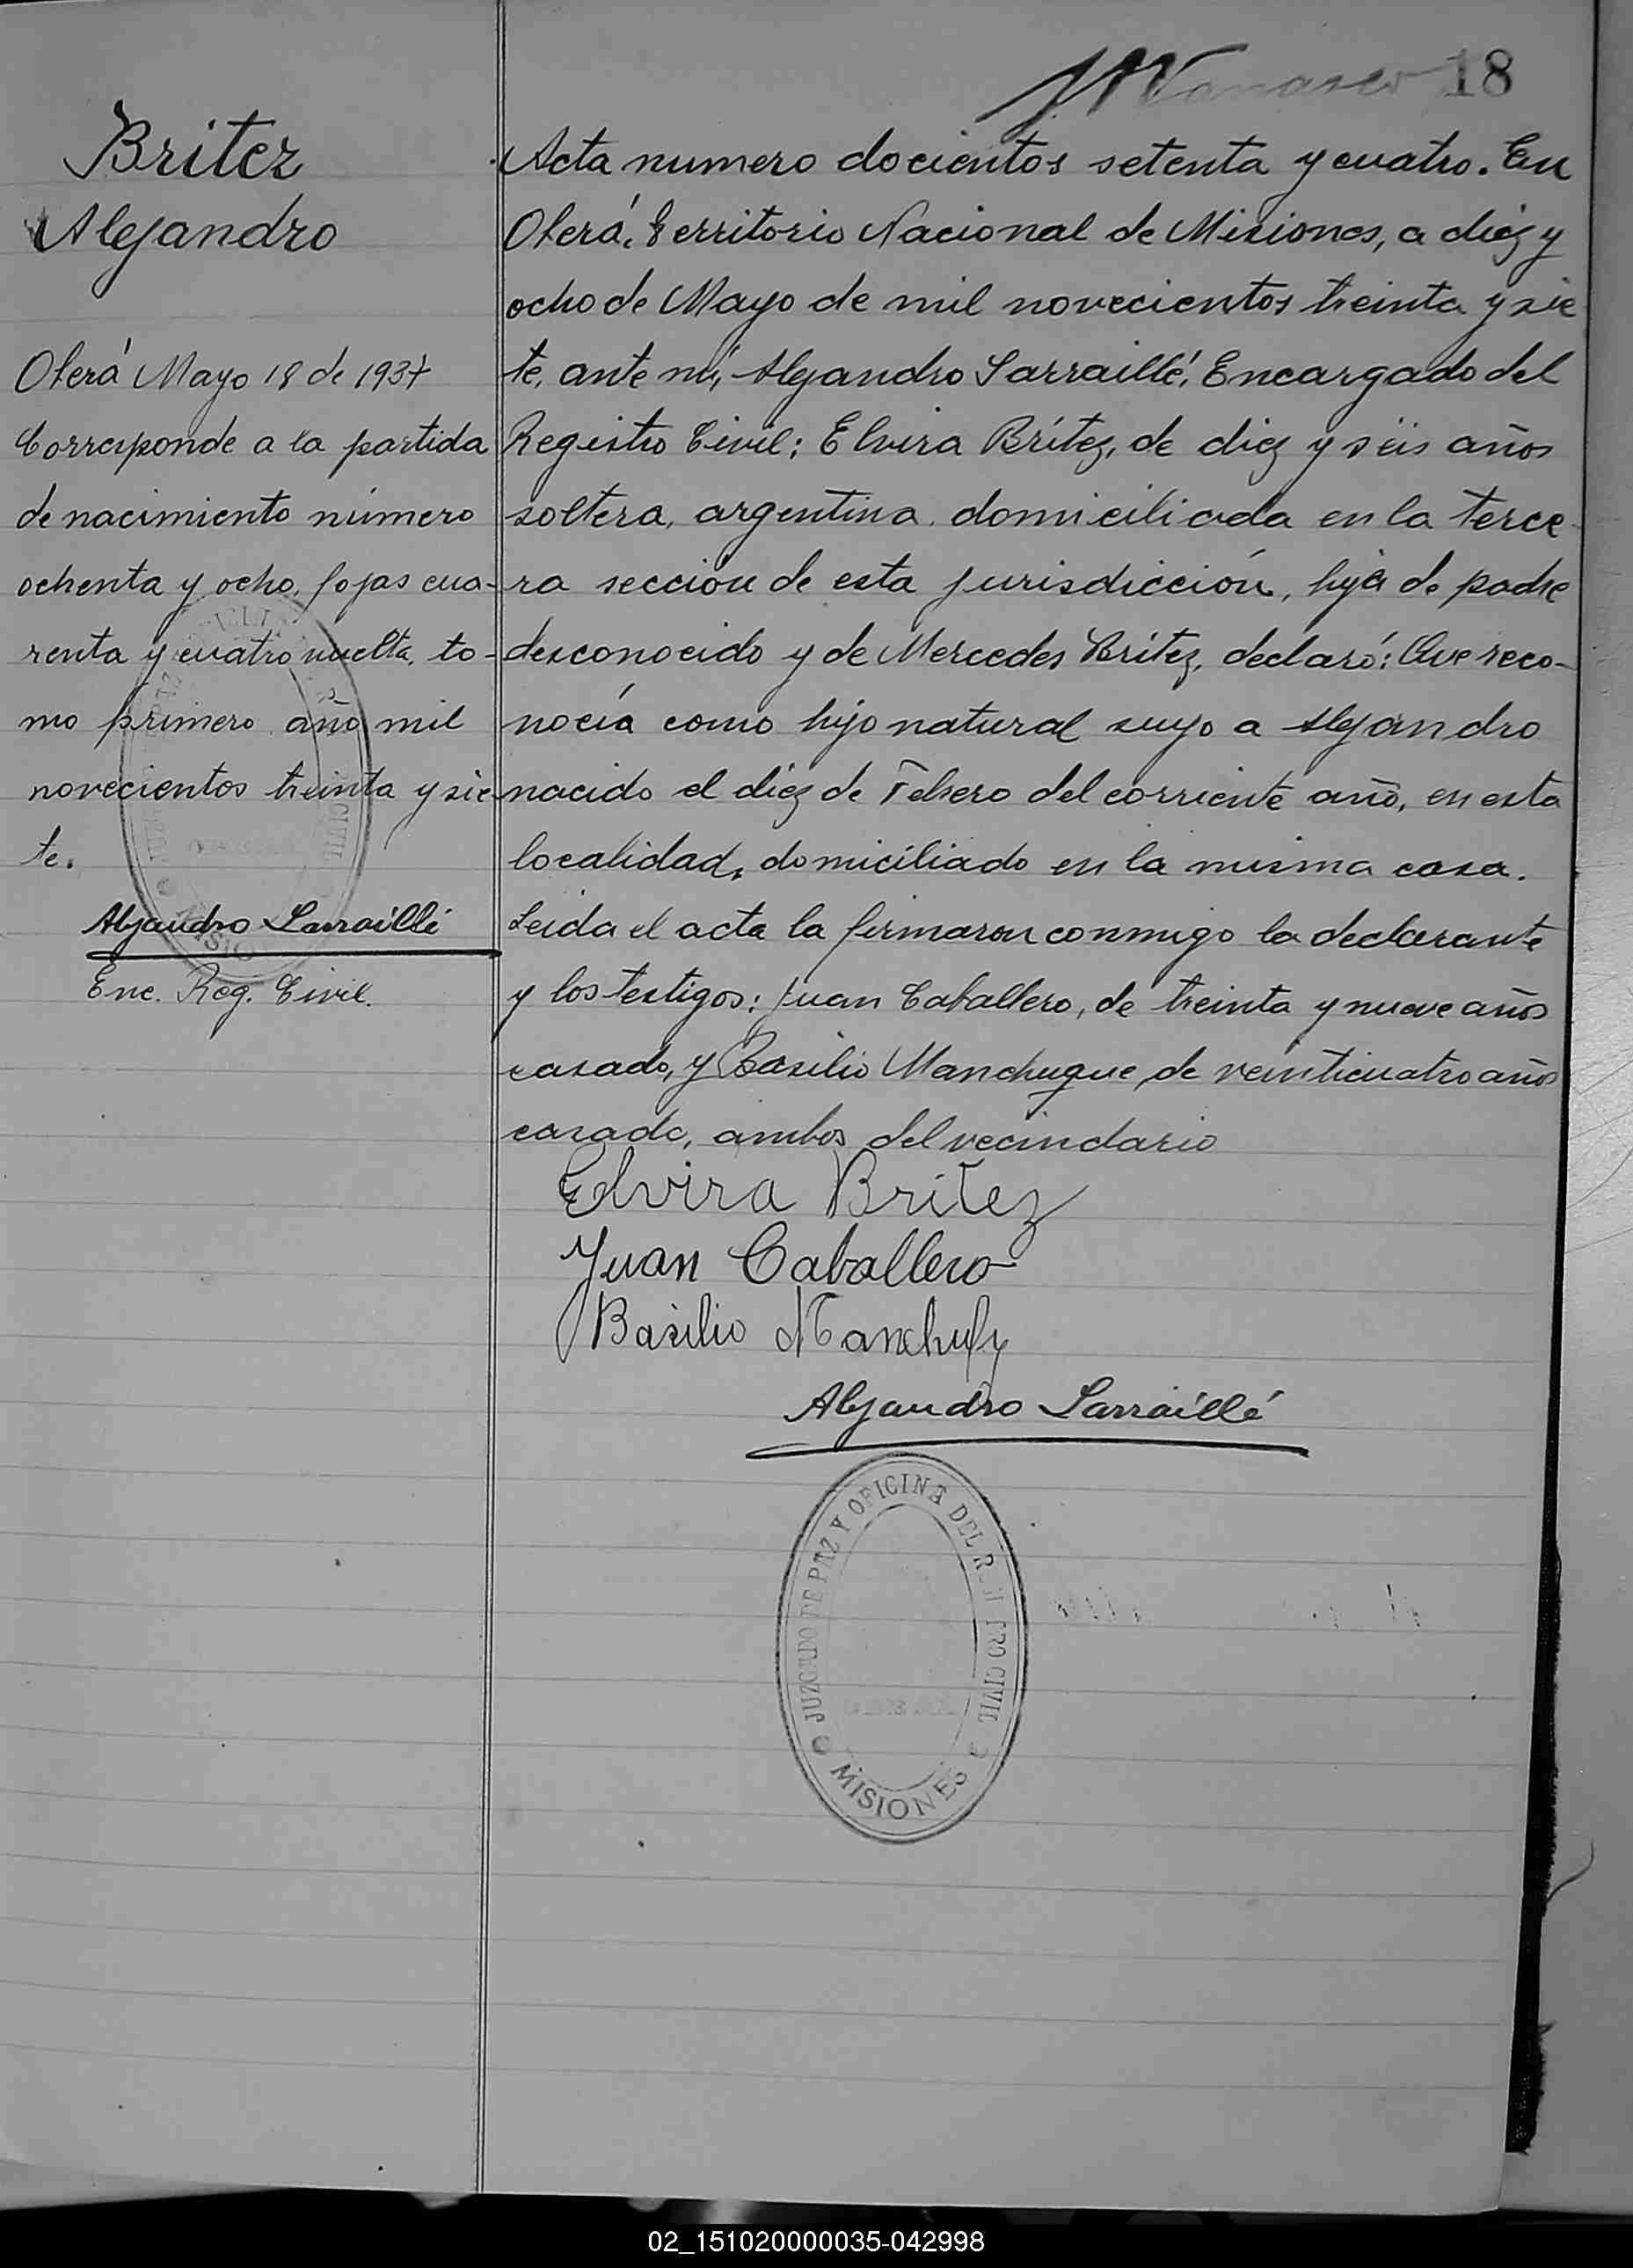 18
Britez
Alejandro
Oberá Mayo 18 de 1937
Corresponde a la partida
de nacimiento número
ochenta y ocho, fojas cua-
renta y cuatro vuelta, to-
mo primero año mil
novecientos treinta y sie
te.
Alejandro Larraillé
Enc. Reg. Civil.
Acta numero docientos setenta y cuatro. En
Oberá, Territorio Nacional de Misiones, a diez y
ocho de Mayo de mil novecientos treinta y sie
te, ante mí, Alejandro Larraillé, Encargado del
Registro Civil; Elvira Brítez, de diez y séis años
soltera, argentina, domiciliada en la terce
ra sección de esta jurisdicción, hija de padre
desconocido y de Mercedes Brítez, declaró: Que reco-
nocía como hijo natural suyo a Alejandro
nacido el diez de Febrero del corriente año, en esta
localidad, domiciliado en la misma casa.
Leida el acta la firmaron conmigo la declarante
y los testigos: Juan Caballero, de treinta y nueve años
casado, y Basilio Manchuque, de veinticuatro años
casado, ambos del vecindario
Elvira Britez
Juan Caballero
Basilio
Alejandro Larraillé
JUZGADO DE PAZ Y OFICINA DEL REGISTRO CIVIL
MISIONES
02_151020000035-042998